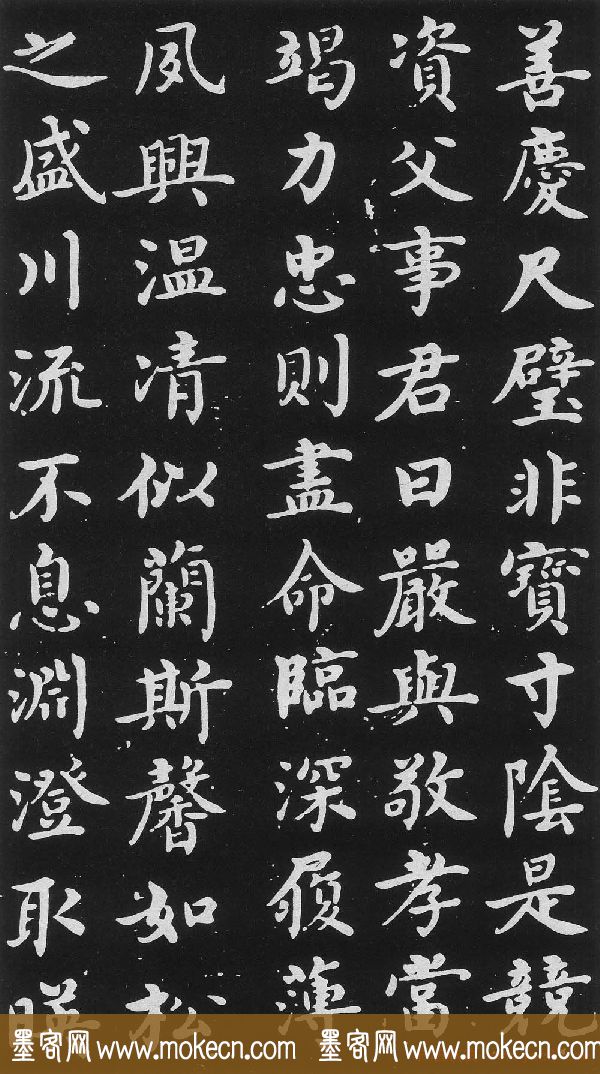 善慶尺璧非寶寸陰是競
資父事君曰嚴與敬孝當
竭力忠則盡命臨深履薄
夙興温凊似蘭斯馨如松
之盛川流不息淵澄取暎
墨客网 www.mokecn.com 墨客网 www.mokecn.com